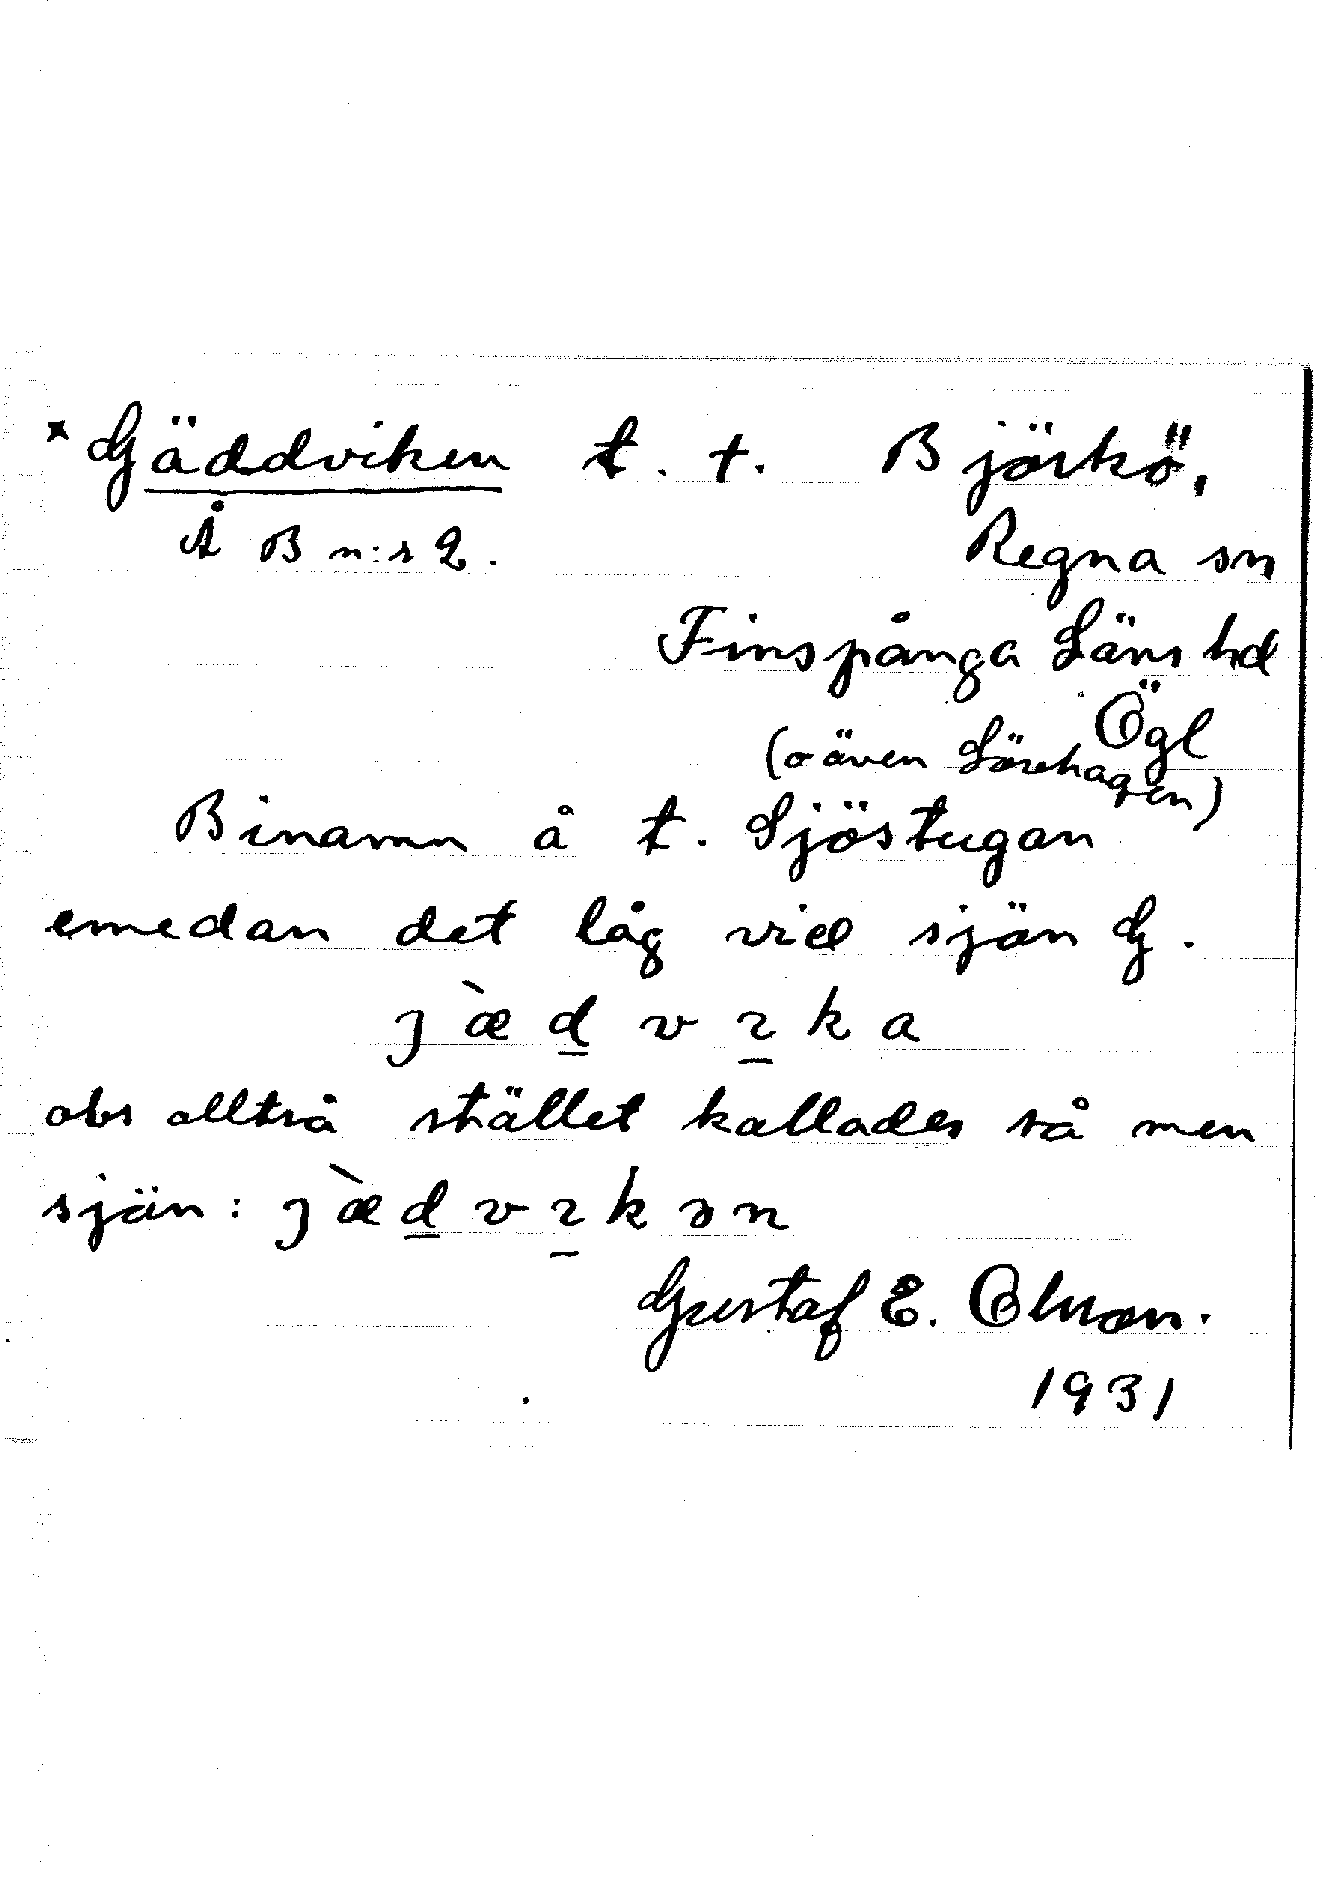 × Gäddviken t. t. Björkö,
Å B n:r 2. Regna sn
Finspånga Läns hd
Ögl
(o även Lörehagen)
Binamn å t. Sjöstugan
emedan det låg vid sjön G.
ȷ æ̀ d̲ v ɿ̲ k a
obs alltså stället kallades så men
sjön: ȷ æ̀ d̲ v ɿ̲ k ə n
Gustaf E. Olsson.
1931